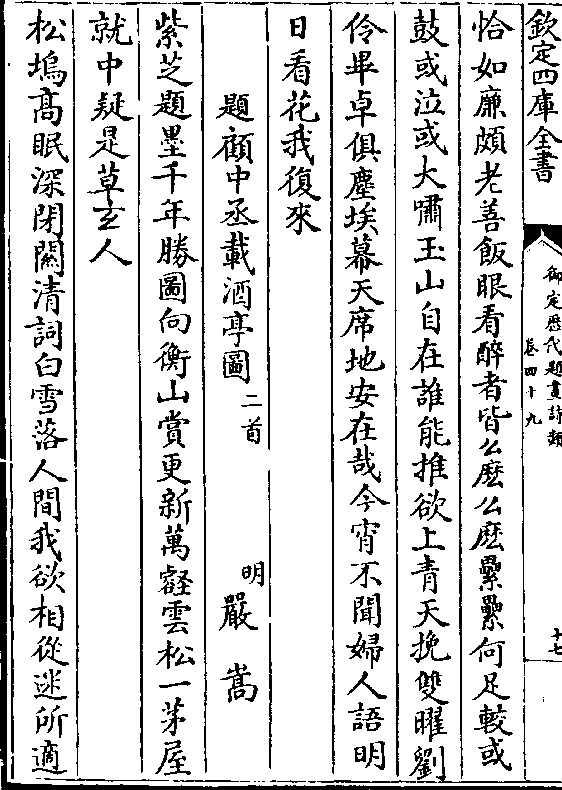 欽定四庫全書
御定歷代題畫詩類
卷四十九
十七
恰如廉頗老善飯眼看醉者皆么麽么麽纍纍何足較或
鼓或泣或大嘯玉山自在誰能推欲上青天挽雙曜劉
伶畢卓俱塵埃幕天席地安在哉今宵不聞婦人語明
日看花我復來
題顧中丞載酒亭圖二首
明嚴嵩
紫芝題墨千年勝圖向衡山賞更新萬壑雲松一茅屋
就中疑是草玄人
松塢高眠深閉闗清詞白雪落人間我欲相從迷所適